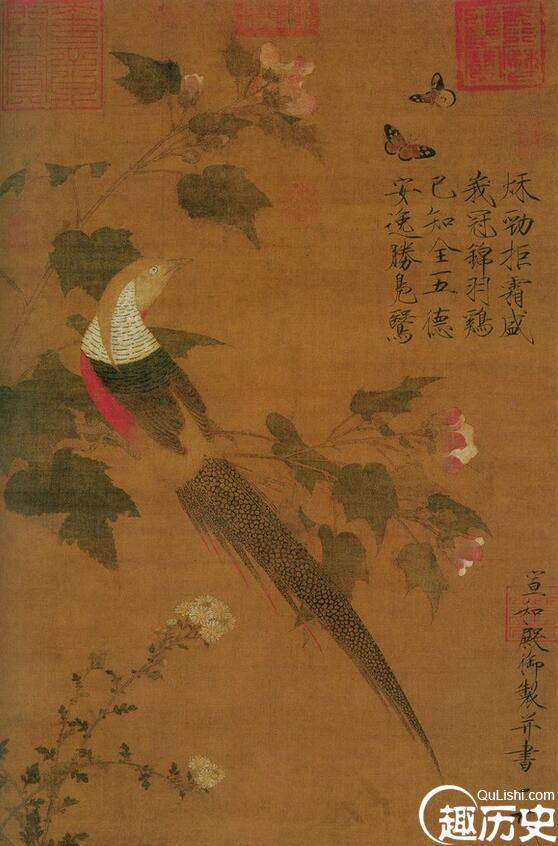 秌勁拒霜盛
峩冠錦羽鷄
已知全五德
安逸勝鳧鷖
宣和殿御製并書
QuLishi.com
趣历史